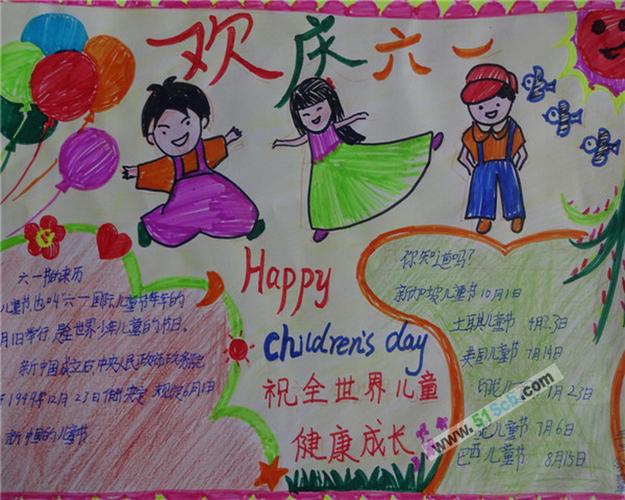 欢庆六一
六一的来历
儿童节也叫"六一国际儿童节每年的
月1日举行 是全世界少年儿童的节日。
新中国成立后中央人民政府政务院
1949年12月23日做决定 规定6月1
新中国的儿童节
Happy
children's day
祝全世界儿童
健康成长
你知道吗?
新加坡儿童节10月1日
土耳其儿童节 4月23日
美国儿童节 7月14日
儿 月23日
儿童节 7月6日
巴西儿童节 8月15日
www.51scb.com